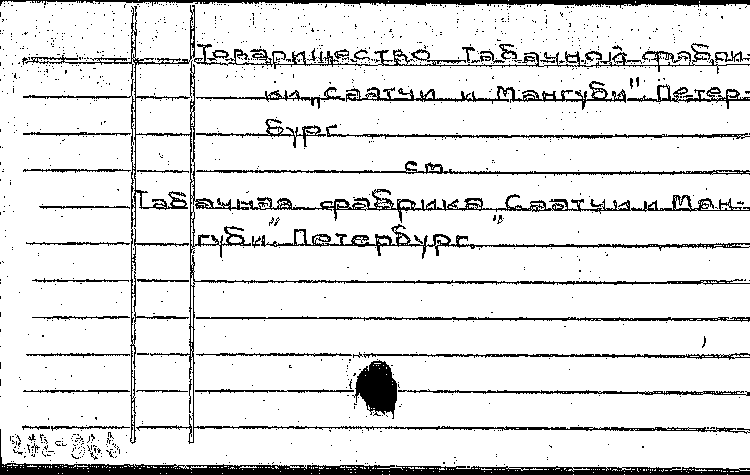 Товарищество Табачной фабри-
ки „Саатчи и Мангуби". Петер-
бург
см.
Табачная фабрика „Саатчи и Ман-
губи". Петербург.